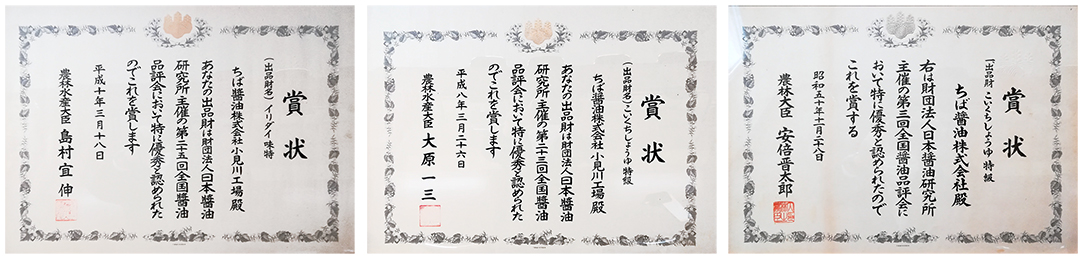 賞状
(出品財名)イリダイ味特
ちば醬油株式会社小見川工場殿
あなたの出品財は財団法人日本醬油
研究所主催の第二十五回全国醬油
品評会において特に優秀と認められた
のでこれを賞します
平成十年三月十八日
農林水産大臣 島村宜伸
賞状
(出品財名)こいくちしょうゆ特級
ちば醬油株式会社小見川工場殿
あなたの出品財は財団法人日本醬油
研究所主催の第二十三回全国醬油
品評会において特に優秀と認められた
のでこれを賞します
平成八年三月二十六日
農林水産大臣 大原一三
賞状
「出品財 こいくちしょうゆ 特級
ちば醬油株式会社殿
右は財団法人日本醬油研究所
主催の第三回全国醬油品評会に
おいて特に優秀と認められたので
これを賞する
昭和五十年十一月二十八日
農林大臣 安倍晋太郎